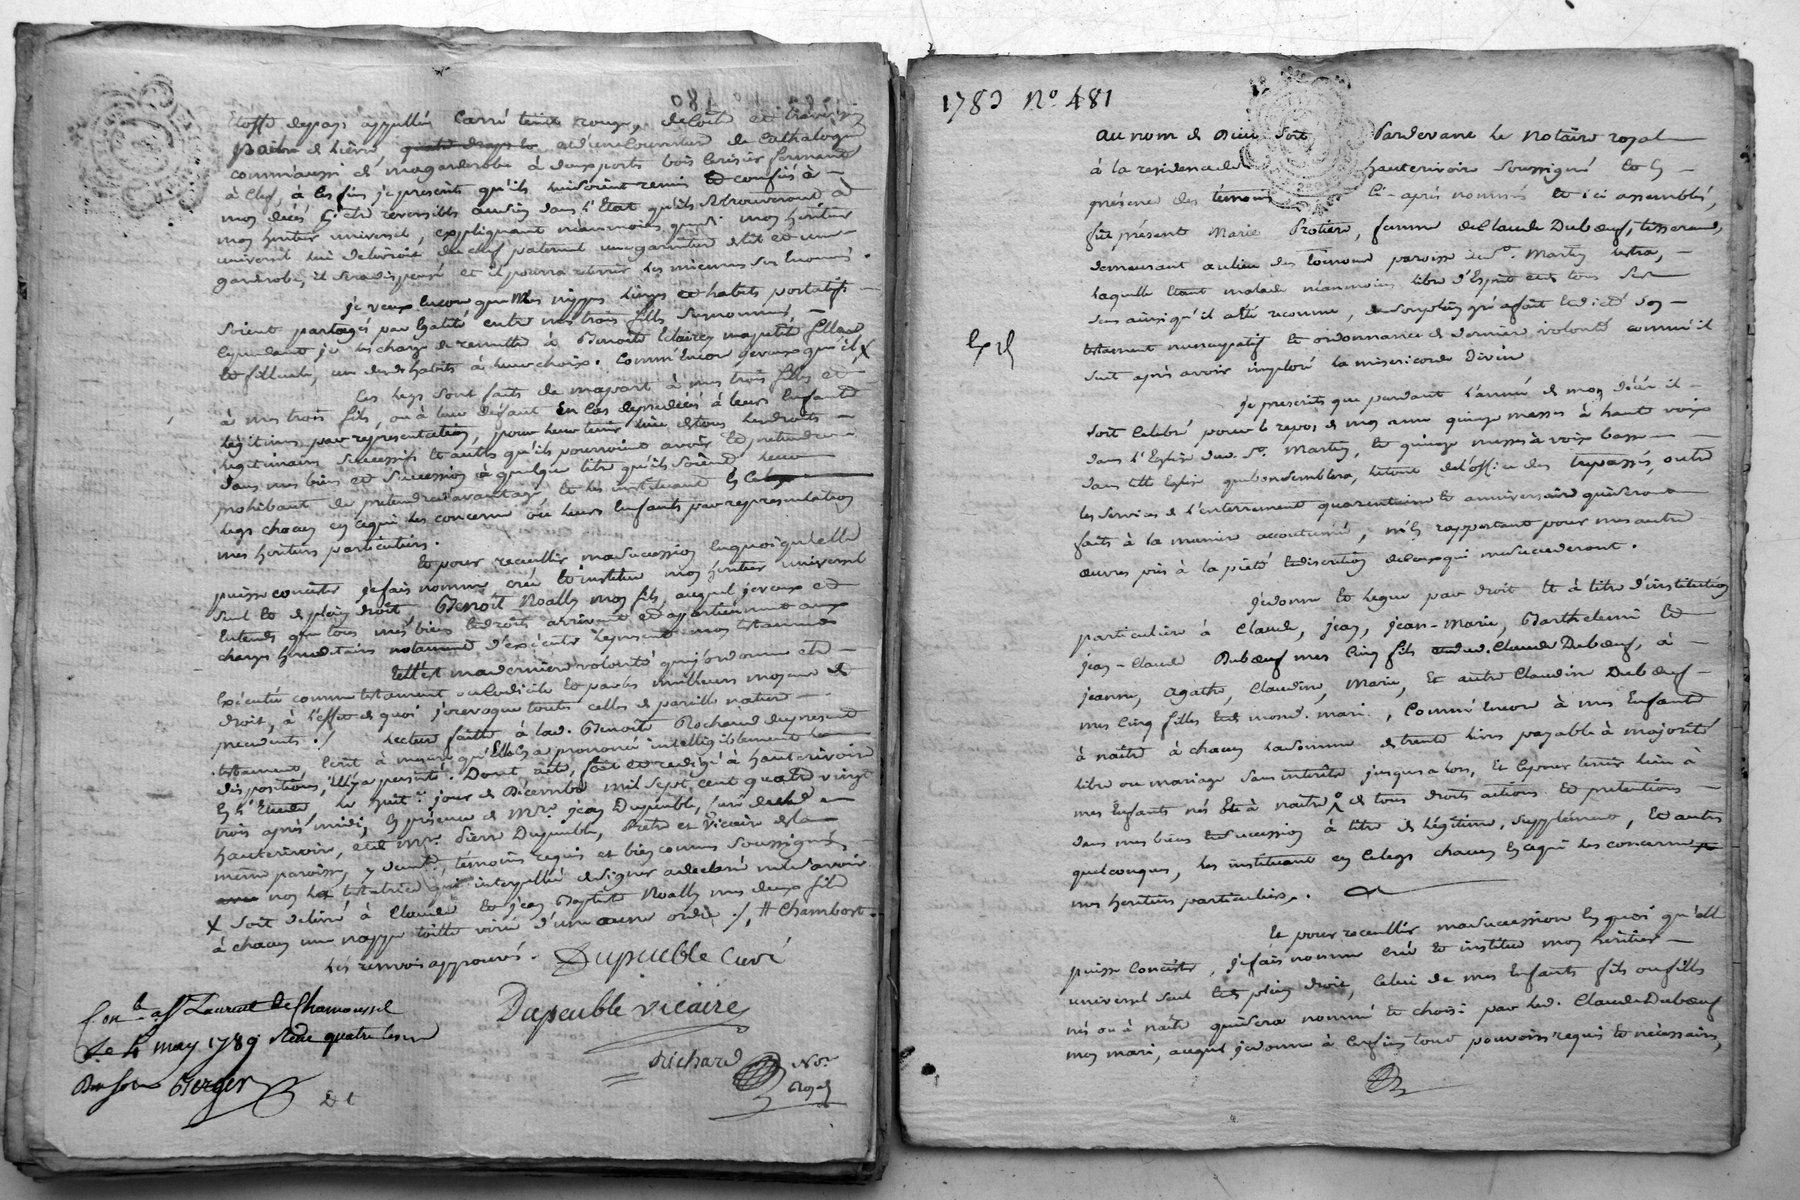 Etoffe depays appellée Carré teint rouge,
paire de lièvre
commausse de magarderobe à deux ports bois cerisier fermant
à clef, à les fins je prescrits qu'ils luisoient remis et confiés à
mon décès et être reversibles audit dans l'Etat qu'ils se trouveront à
mon heritier universel, expliquant néanmoins que si mon heritier
universel lui delivroit du chef paternel une garniture de lit et une
garderobe, il sera dispensé et il pourra retenir les miennes sus enoncés.
je veux encore que mes nippes linges et habits portatifs
soient partagés par Egalité entre mes trois filles susnommées
cependant je les charge de remettre à Benoite Claire ma petite fille
et filleule, un de des habits à leur choix. Comm'Encor je veux qu'il X
Ces legs sont faits de ma part à mes trois filles et
à mes trois fils, ou à leur défaut En cas de predécès à leurs Enfants
légitimes par représentation, pour leur tenir lieu de tous les droits
legitimaires successifs et autres qu'ils pourroient avoir et prétendre
dans mes biens et succession à quelque titre qu'ils soient leur
prohibant de prétendre davantage et les instituant
legs chacun en ce qui les concerne où leurs Enfants par représentation
mes heritiers particuliers.
Et pour recueillir ma succession En quoi qu'elle
puisse consister je fais nomme crée et institue mon heritier universel
seul et de plein droit Benoit Noally mon fils, auquel je veux et
Entends que tous mes biens et droits arrivent et appartiennent aux
charges hereditaires notament d'exécuter le present mon testament
telle est ma dernière volonté qui j'ordonne être
Exécutée comme testament ou codicile et par les meilleurs moyens de
droit, à l'effet de quoi je revoque toutes celles de pareille nature
precedents ./ Lecture faitte à lad. Benoite Rochand du present
testament Ecrit à mesure qu'Elle a prononcé intelligiblement
dispositions, Elle y a persisté. Dont acte, fait et redigé à hauterivoire
En l'Etude le huit.e jour de Decembre mil sept cent quatre vingt
trois après midi, En présence de Mre. jean Dupeuble, curé dudit
hauterivoire, et de Mre. Pierre Dupeuble, Prêtre et Vicaire de la
même paroisse y demt. temoins requis et bien connus soussignés
non la testatrice qui interpellée de signer a declaré ne le savoir
X soit délivré à Claude et jean Baptiste Noally mes deux fils
à chacun une nappe toille virée d'une aune ordie ./. H Chambost.
Les renvois approuvés. Dupeuble Curé
Dupeuble vicaire
Richard Nore. Royal
Conlé. à St Laurent de Chamousset
Le 4 may 1789
Berger
1783 No. 481
Au nom de Dieu soit Pardevant le Notaire royal
à la residence de hauterivoire soussigné et En
présence des témoins Ci-après nommés et ici assemblés,
fût présent Marie Protière, femme de Claude Dubœuf, tisserand,
demeurant au lieu des paroisse de St. Martin
Laquelle Etant malade néanmoins libre d'Esprit et de tous ses
sens ainsi qu'il a été reconnu, de son plein gré a fait et dicté son
testament nuncupatif et ordonnance de derniere volonté comme il
suit après avoir imploré la misericorde divine
je prescrits que pendant l'année de mon décès il
soit Celebré pour le repos de mon ame quinze messes à haute voix
dans l'Eglise dud. St. Martin, et quinze messes à voix basse
dans telle Eglise que bon semblera, le tout de l'office des trépassés, outre
les services de l'enterrement quarantaine et anniversaire qui seront
faits à la maniere accoutumée, m'En rapportant pour mes autres
œuvres pies à la piété et discretion de ceux qui me succederont.
je donne et legue par droit et à titre d'institution
particulière à Claude, jean, jean-Marie, Barthelemi et
jean-Claude Dubœuf mes cinq fils et dud. Claude Dubœuf, à
jeanne, Agathe, Claudine, Marie, et autre Claudine Dubœuf
mes Cinq filles et de mond. mari, Comm'Encore à mes Enfants
à naitre à chacun la somme de trente livres payable à majorité
libre ou mariage sans interêts jusqu'alors, Et Cepour tenir lieu à
mes Enfants nés Et à naitre de tous droits actions et pretentions
dans mes biens et succession à titre de légitime, supplément, Et autres
quelconques, les instituant en ce legs chacun En ce qui les concerne
mes heritiers particuliers.
Et pour recueillir ma succession En quoi qu'elle
puisse Consister, je fais nomme crée et institue mon heritier
universel seul et de plein droit, celui de mes Enfants fils ou filles
nés ou à naitre qui sera nommé et choisi par led. Claude Dubœuf
mon mari, auquel je donne à ces fins tout pouvoirs requis et nécessaires,